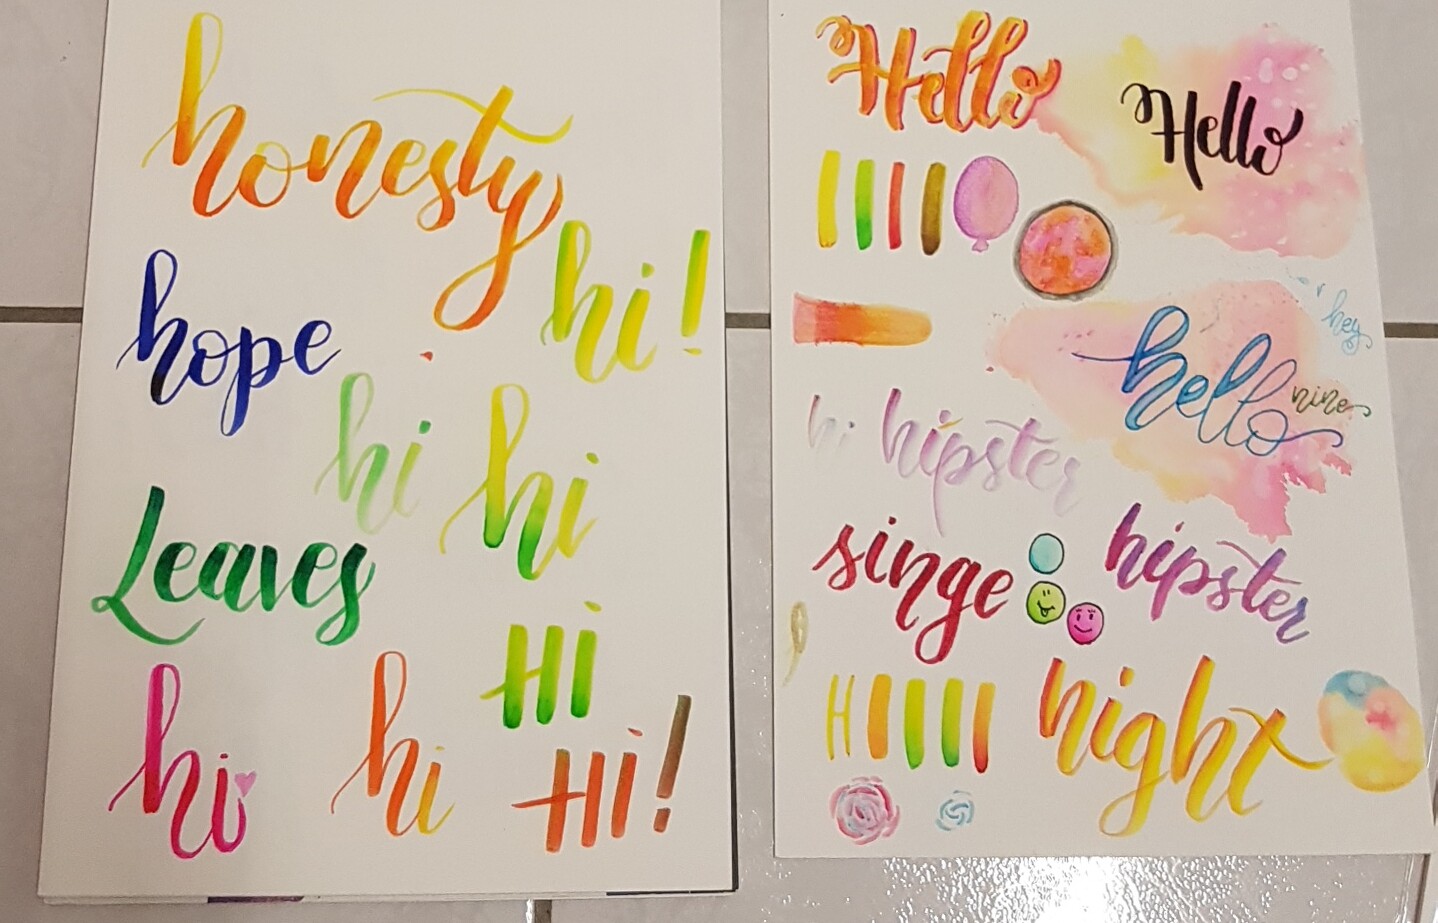 honesty
hi!
hope
hi
hi
Leaves
Hi
hi
hi
Hi!
Hello
Hello
hey
hello
nine
hi
hipster
singe
hipster
H
night